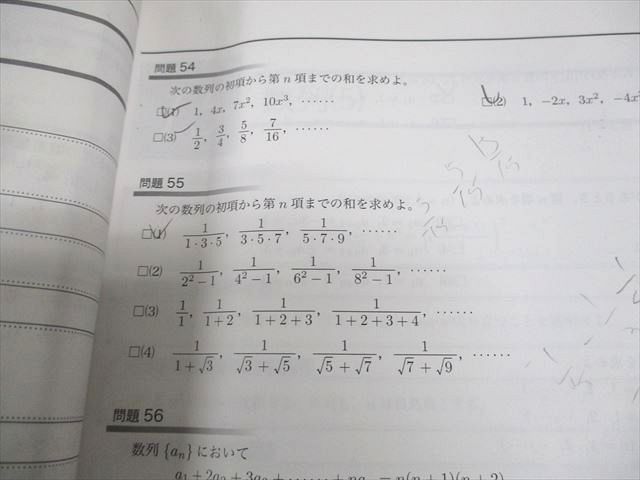 問題 54
次の数列の初項から第 n 項までの和を求めよ。
□(1) 1, 4x, 7x², 10x³, ……
□(2) 1, −2x, 3x², −4x³
□(3) 1/2, 3/4, 5/8, 7/16, ……
問題 55
次の数列の初項から第 n 項までの和を求めよ。
□(1) 1/(1·3·5), 1/(3·5·7), 1/(5·7·9), ……
□(2) 1/(2²−1), 1/(4²−1), 1/(6²−1), 1/(8²−1), ……
□(3) 1/1, 1/(1+2), 1/(1+2+3), 1/(1+2+3+4), ……
□(4) 1/(1+√3), 1/(√3+√5), 1/(√5+√7), 1/(√7+√9), ……
問題 56
数列 {aₙ} において
a₁+2a₂+3a₃+……+naₙ=n(n+1)(n+2)